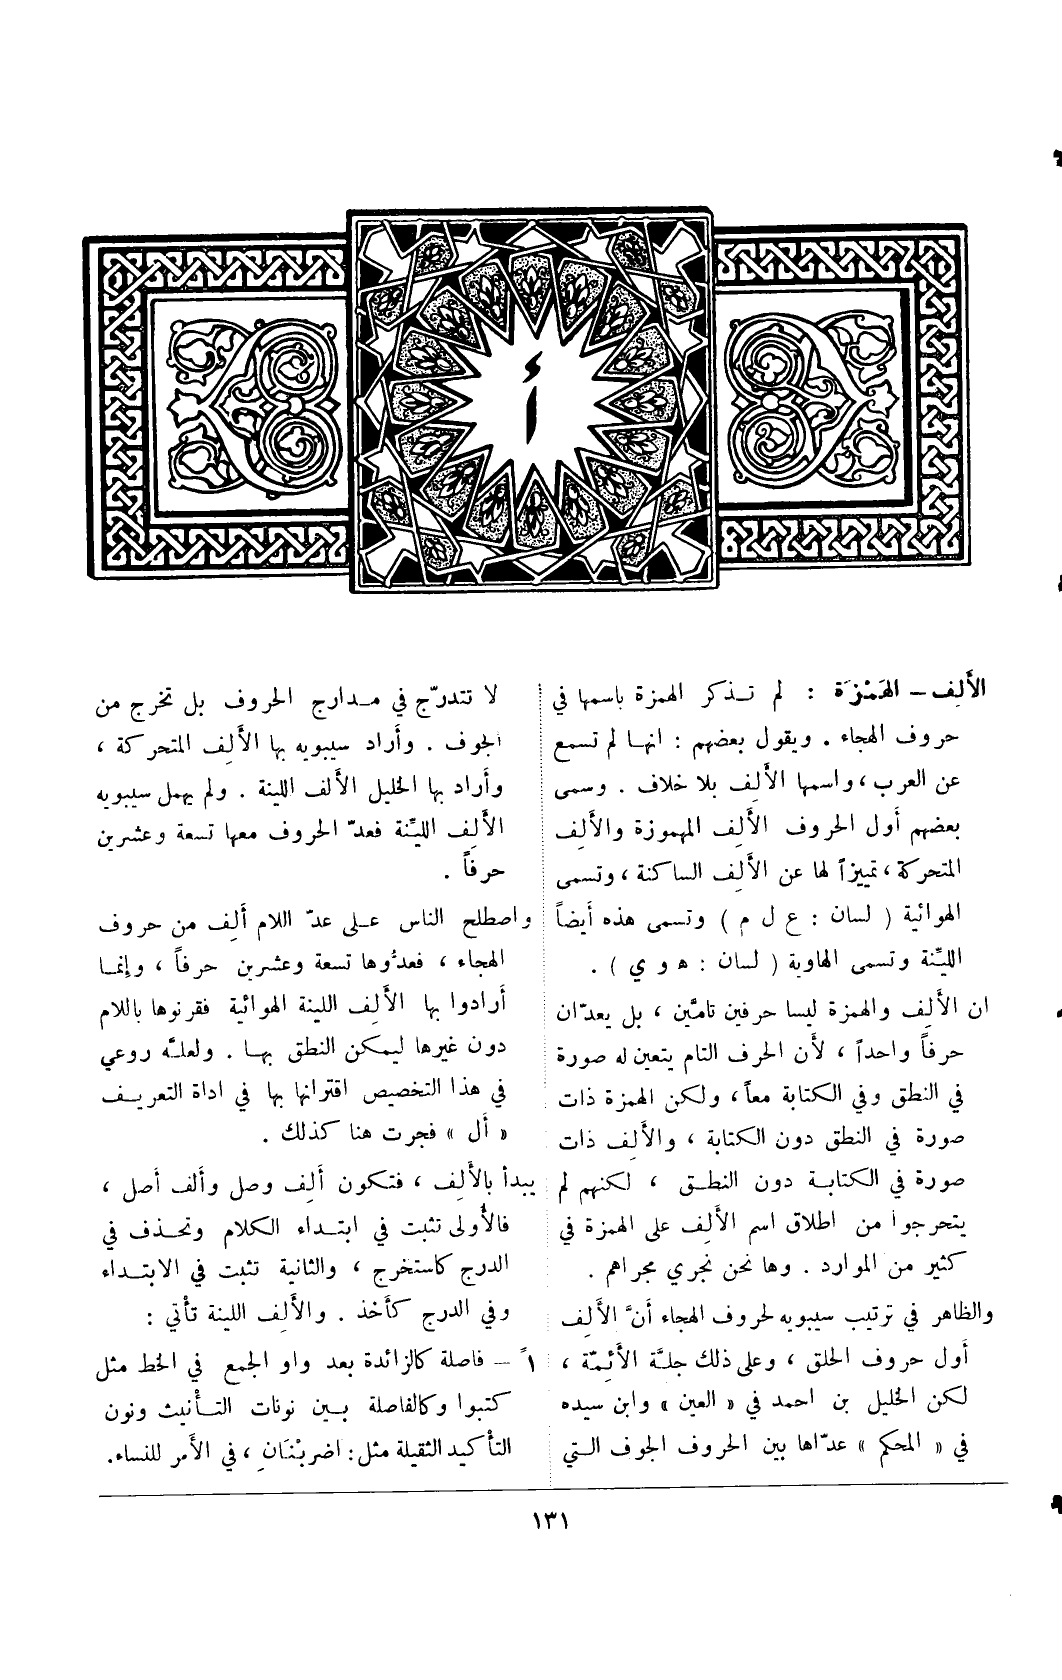 أ
الألف – الهَمْزَة : لم تـذكر الهمزة باسمها في
حروف الهجاء . ويقول بعضهم : انهـا لم تسمع
عن العرب ، واسمها الألِف بلا خلاف . وسمى
بعضهم أول الحروف الألِف المهموزة والألِف
المتحركة ، تمييزاً لها عن الألِف الساكنة ، وتسمى
الهوائية ( لسان : ع ل م ) وتسمى هذه أيضاً
الليِّنة وتسمى الهاوية ( لسان : ه و ي ) .
ان الألِف والهمزة ليسا حرفين تامَّين ، بل يعدّان
حرفاً واحداً ، لأن الحرف التام يتعين له صورة
في النطق وفي الكتابة معاً ، ولكن الهمزة ذات
صورة في النطق دون الكتابة ، والألِف ذات
صورة في الكتابـة دون النطـق ، لكنهم لم
يتحرجوا من اطلاق اسم الألِف على الهمزة في
كثير من الموارد . وها نحن نجري مجراهم .
والظاهر في ترتيب سيبويه لحروف الهجاء أنَّ الألِف
أول حروف الحلق ، وعلى ذلك جلَّة الأئمّة ،
لكن الخليل بن احمد في « العين » وابن سيده
في « المحكم » عدّاها بين الحروف الجوف الـتي
لا تتدرّج في مـدارج الحروف بل تخرج من
الجوف . وأراد سيبويه بها الألِف المتحركة ،
وأراد بها الخليل الألف اللينة . ولم يهمل سيبويه
الألِف الليِّنة فعدّ الحروف معها تسعة وعشرين
حرفاً .
واصطلح الناس عـلى عدّ اللام ألِف من حروف
الهجاء ، فعدُّوها تسعة وعشرين حرفاً ، وإنمـا
أرادوا بها الألِف اللينة الهوائية فقرنوها باللام
دون غيرها ليمكن النطق بهـا . ولعلـَّه روعي
في هذا التخصيص اقترانها بها في اداة التعريـف
« أل » فجرت هنا كذلك .
يبدأ بالألِف ، فتكون ألِف وصل وألف أصل ،
فالأولى تثبت في ابتـداء الكلام وتحـذف في
الدرج كاستخرج ، والثانية تثبت في الابتـداء
وفي الدرج كأخذ . والألِف اللينة تأتي :
١ً – فاصلة كالزائدة بعد واو الجمع في الخط مثل
كتبوا وكالفاصلة بـين نونات التـأنيث ونون
التأكيد الثقيلة مثل : اضربْنَانِ ، في الأمر للنساء.
١٣١